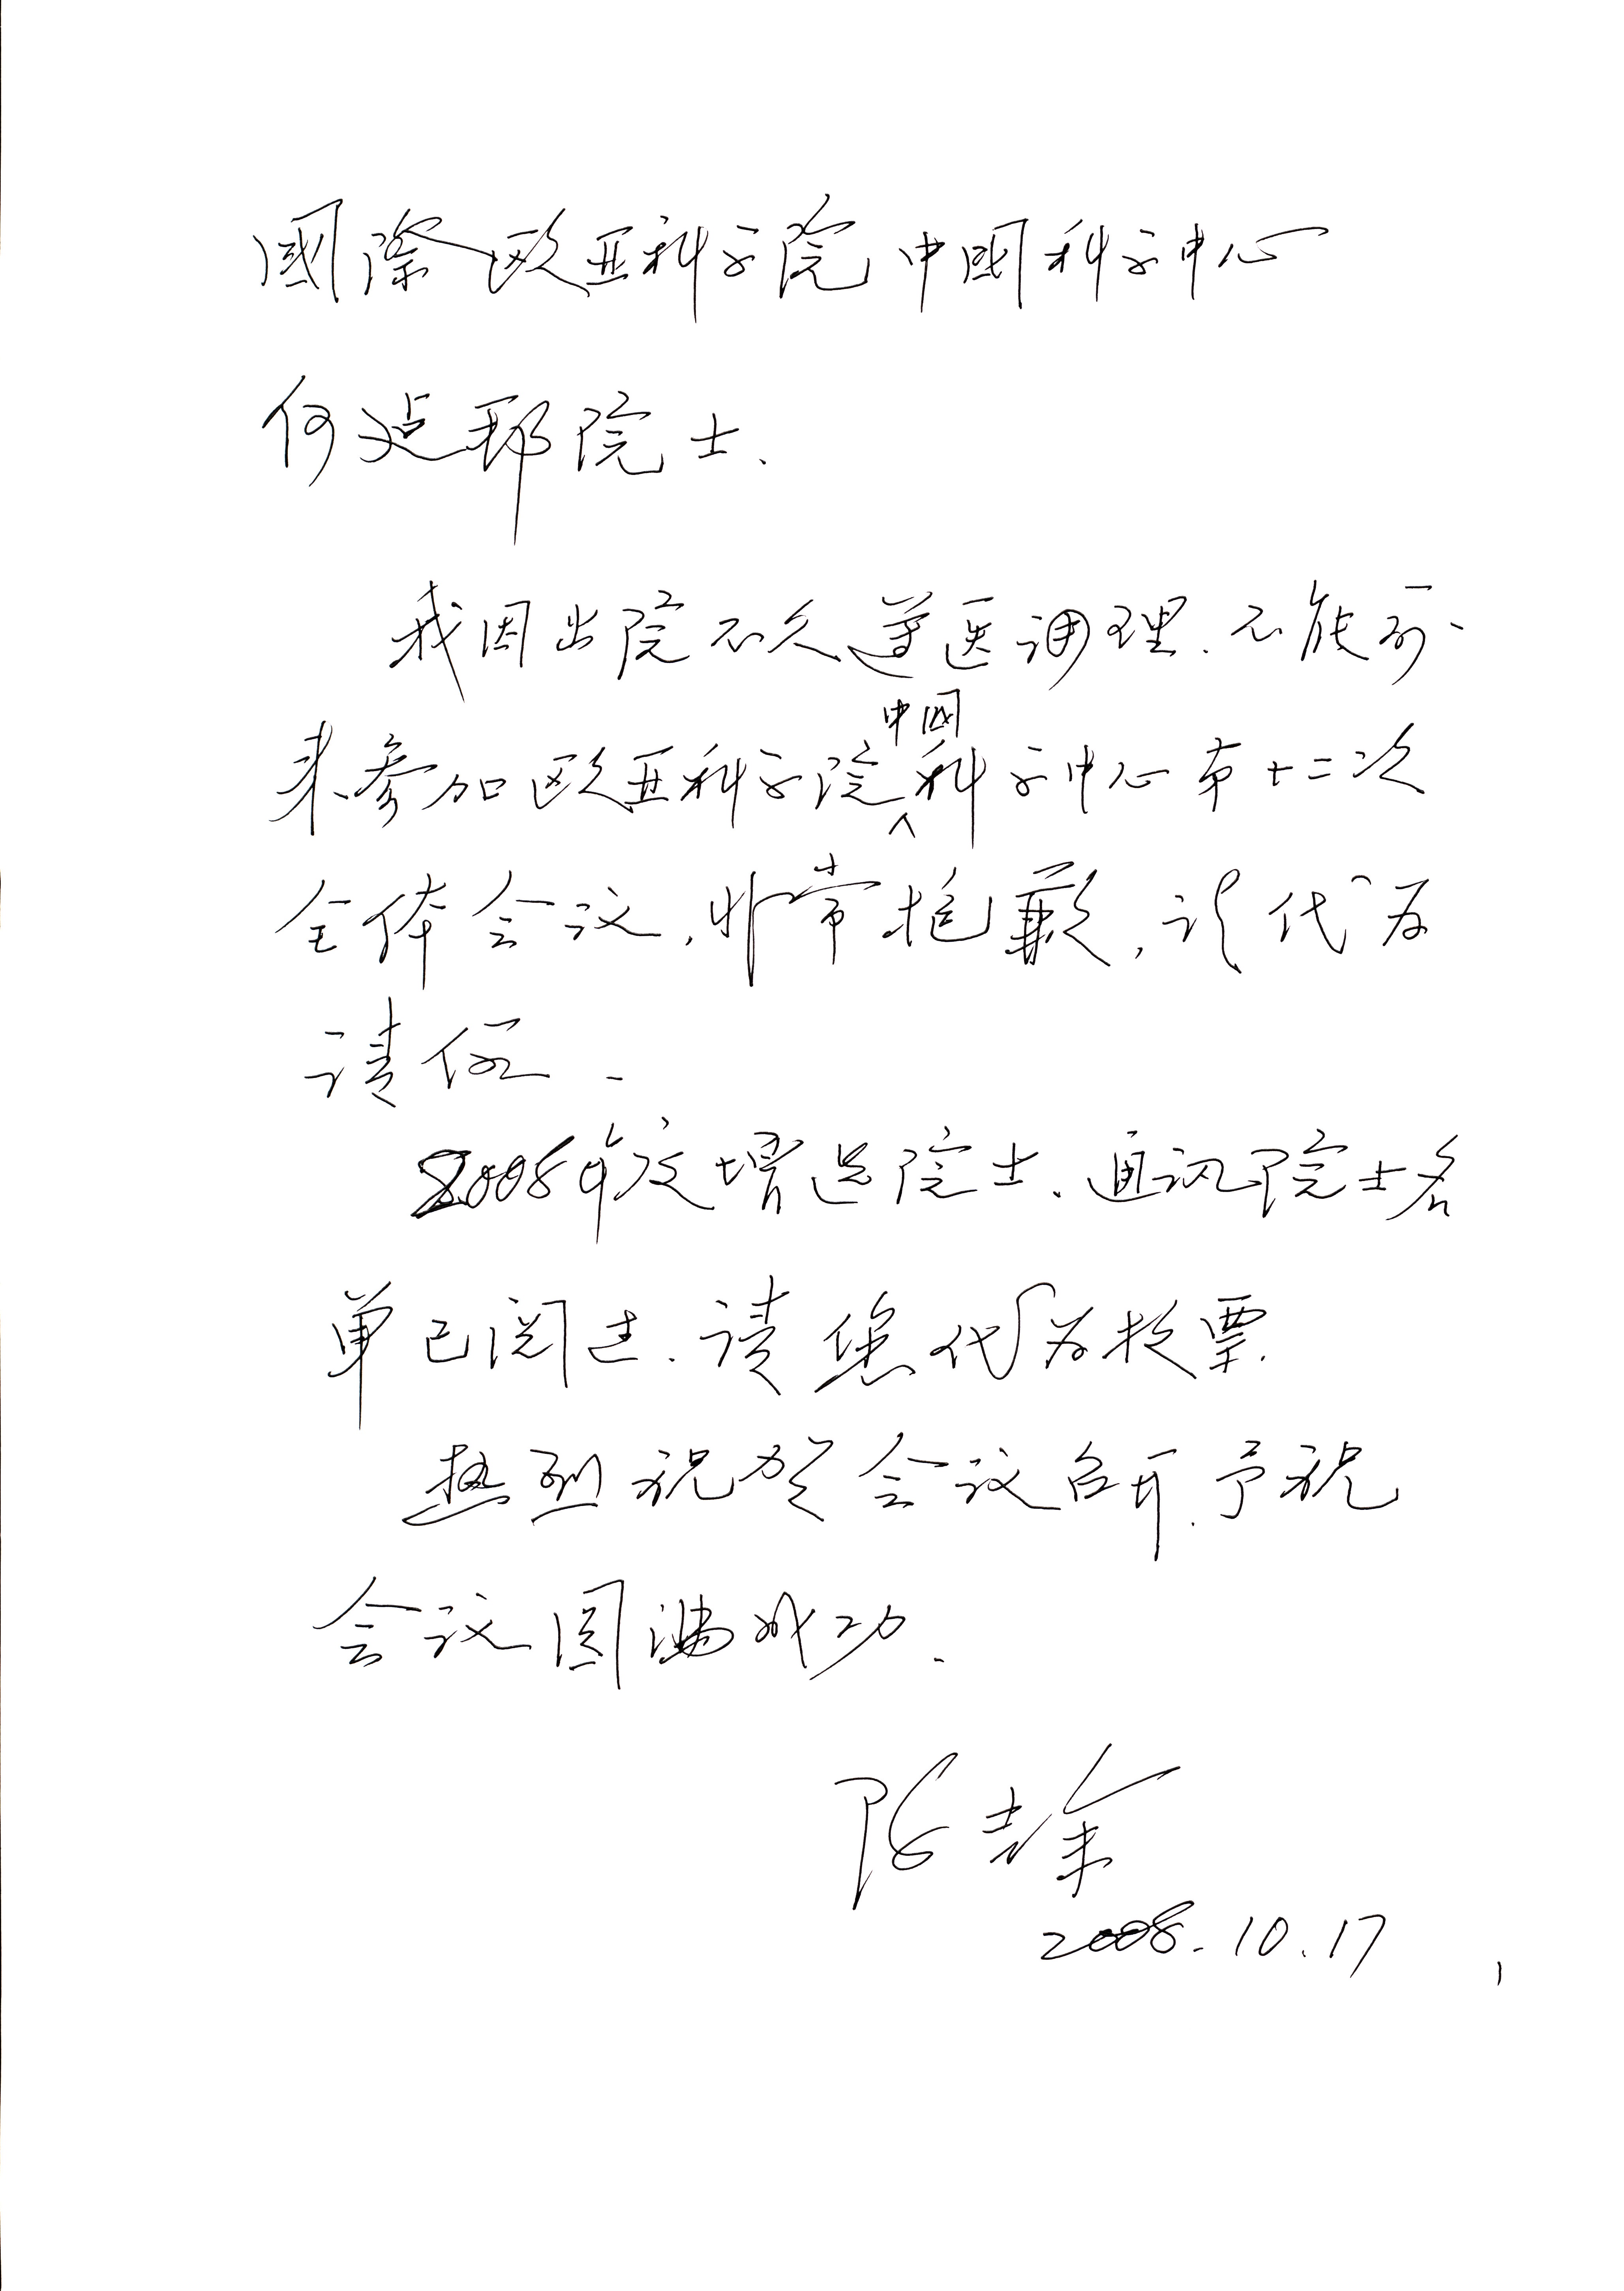 國際欧亚科学院中國科学中心
何建邦院士、
我因出院不久遵医调理、不能前
来参加欧亚科学院中国科学中心第十二次
全体会议，非常抱歉，请代为
请假.
2008年度增选院士、通讯院士名
单已阅过、请您代为投票.
热烈祝贺会议召开、予祝
会议圆满成功.
陈
2008.10.17